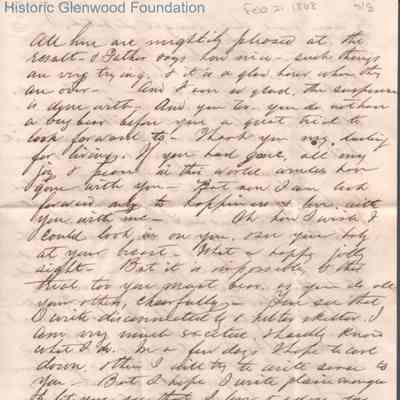 Historic Glenwood Foundation
Feb 21 1868
All here are mightily pleased at the
result - & Father says how nice - such things
are very trying, & it is a glad hour when they
are over - And I am so glad, the suspense
is done with - And you too - you do not have
a bug bear before you a great trial to
look forward to! - Thank you my darling
for living. If you had gone, all my
joy & peace in this world would have
gone with you - But now I am look
forward only to happiness & love with
you with me - Oh how I wish I
could look in on you, see your baby
at your breast - What a happy jolly
sight - But it is impossible, & this
trial too you must bear, as you do all
your others, cheerfully - You see that
I write disconnectedly & helter skelter. I
am very much excited, & hardly know
what I do. In a few days I hope to cool
down, & then I will try to write sense to
you - But I hope I write plain enough
to let you see that I